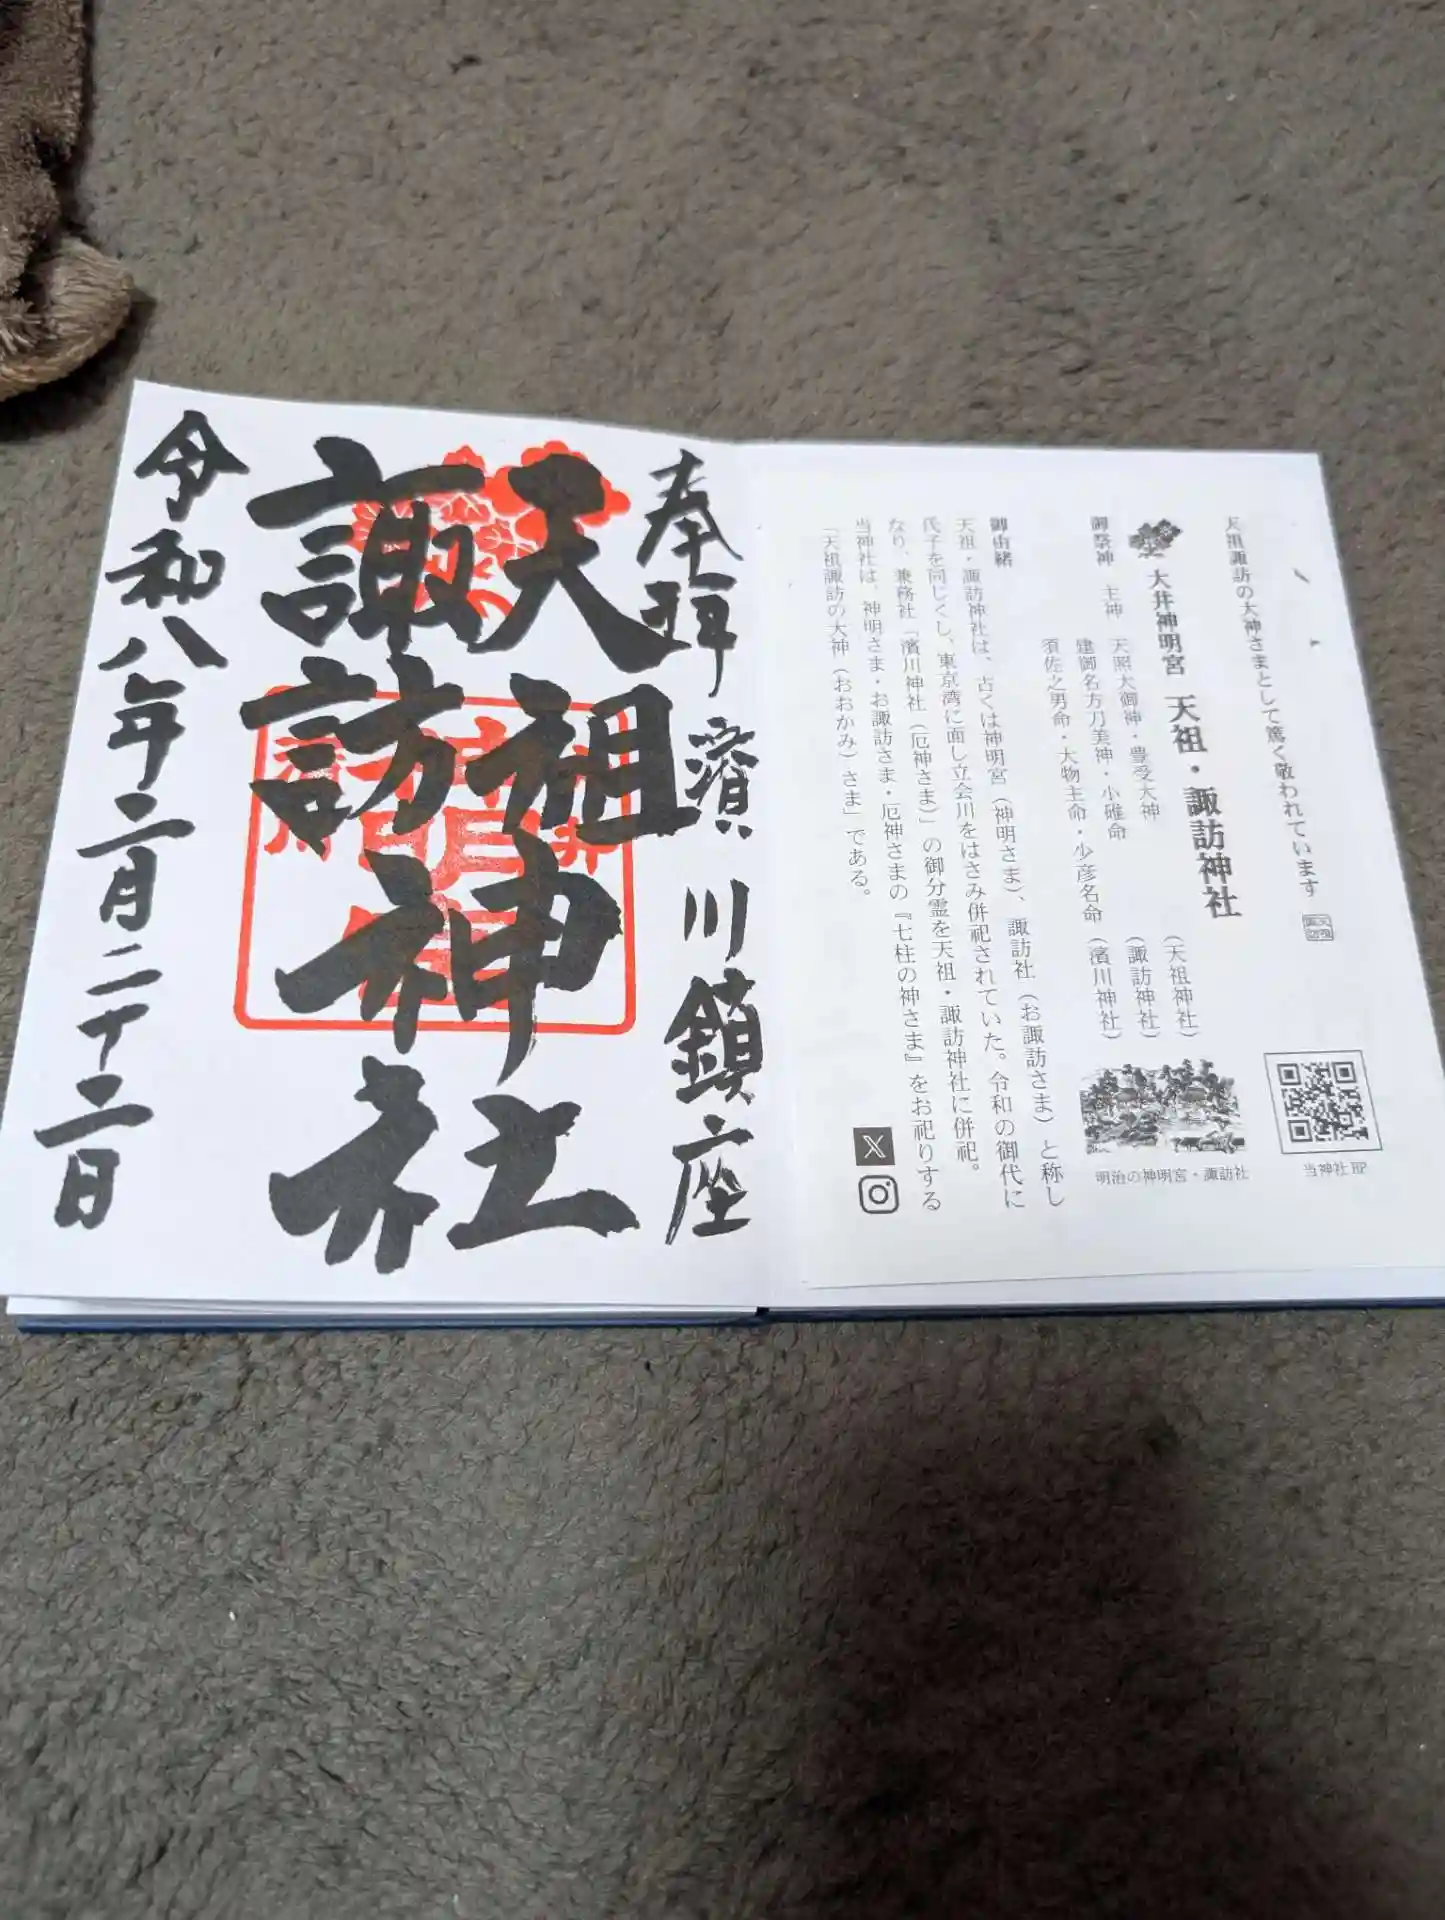 天祖諏訪の大神さまとして篤く敬われています
大井神明宮 天祖・諏訪神社
御祭神 主神 天照大御神・豊受大神 (天祖神社)
建御名方刀美神・小碓命 (諏訪神社)
須佐之男命・大物主命・少彦名命 (濱川神社)
御由緒
天祖・諏訪神社は、古くは神明宮(神明さま)、諏訪社(お諏訪さま)と称し
氏子を同じくし、東京湾に面し立会川をはさみ併祀されていた。令和の御代に
なり、兼務社「濱川神社(厄神さま)」の御分霊を天祖・諏訪神社に併祀。
当神社は、神明さま・お諏訪さま・厄神さまの『七柱の神さま』をお祀りする
「天祖諏訪の大神(おおかみ)さま」である。
当神社HP
明治の神明宮・諏訪社
奉拝 濱川鎮座
天祖神社
諏訪神社
令和八年二月二十二日